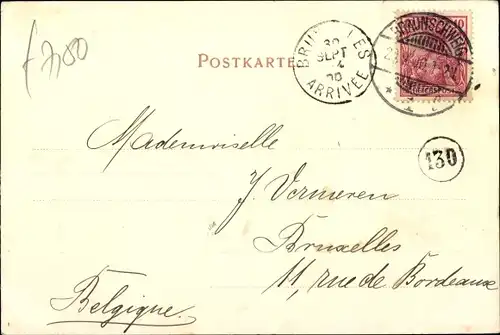 f 7,50
POSTKARTE
BRUXELLES
30
SEPT
4
00
ARRIVEE
BRAUNSCHWEIG
10
130
Mademoiselle
J. Vermeren
Bruxelles
11, rue de Bordeaux
Belgique.